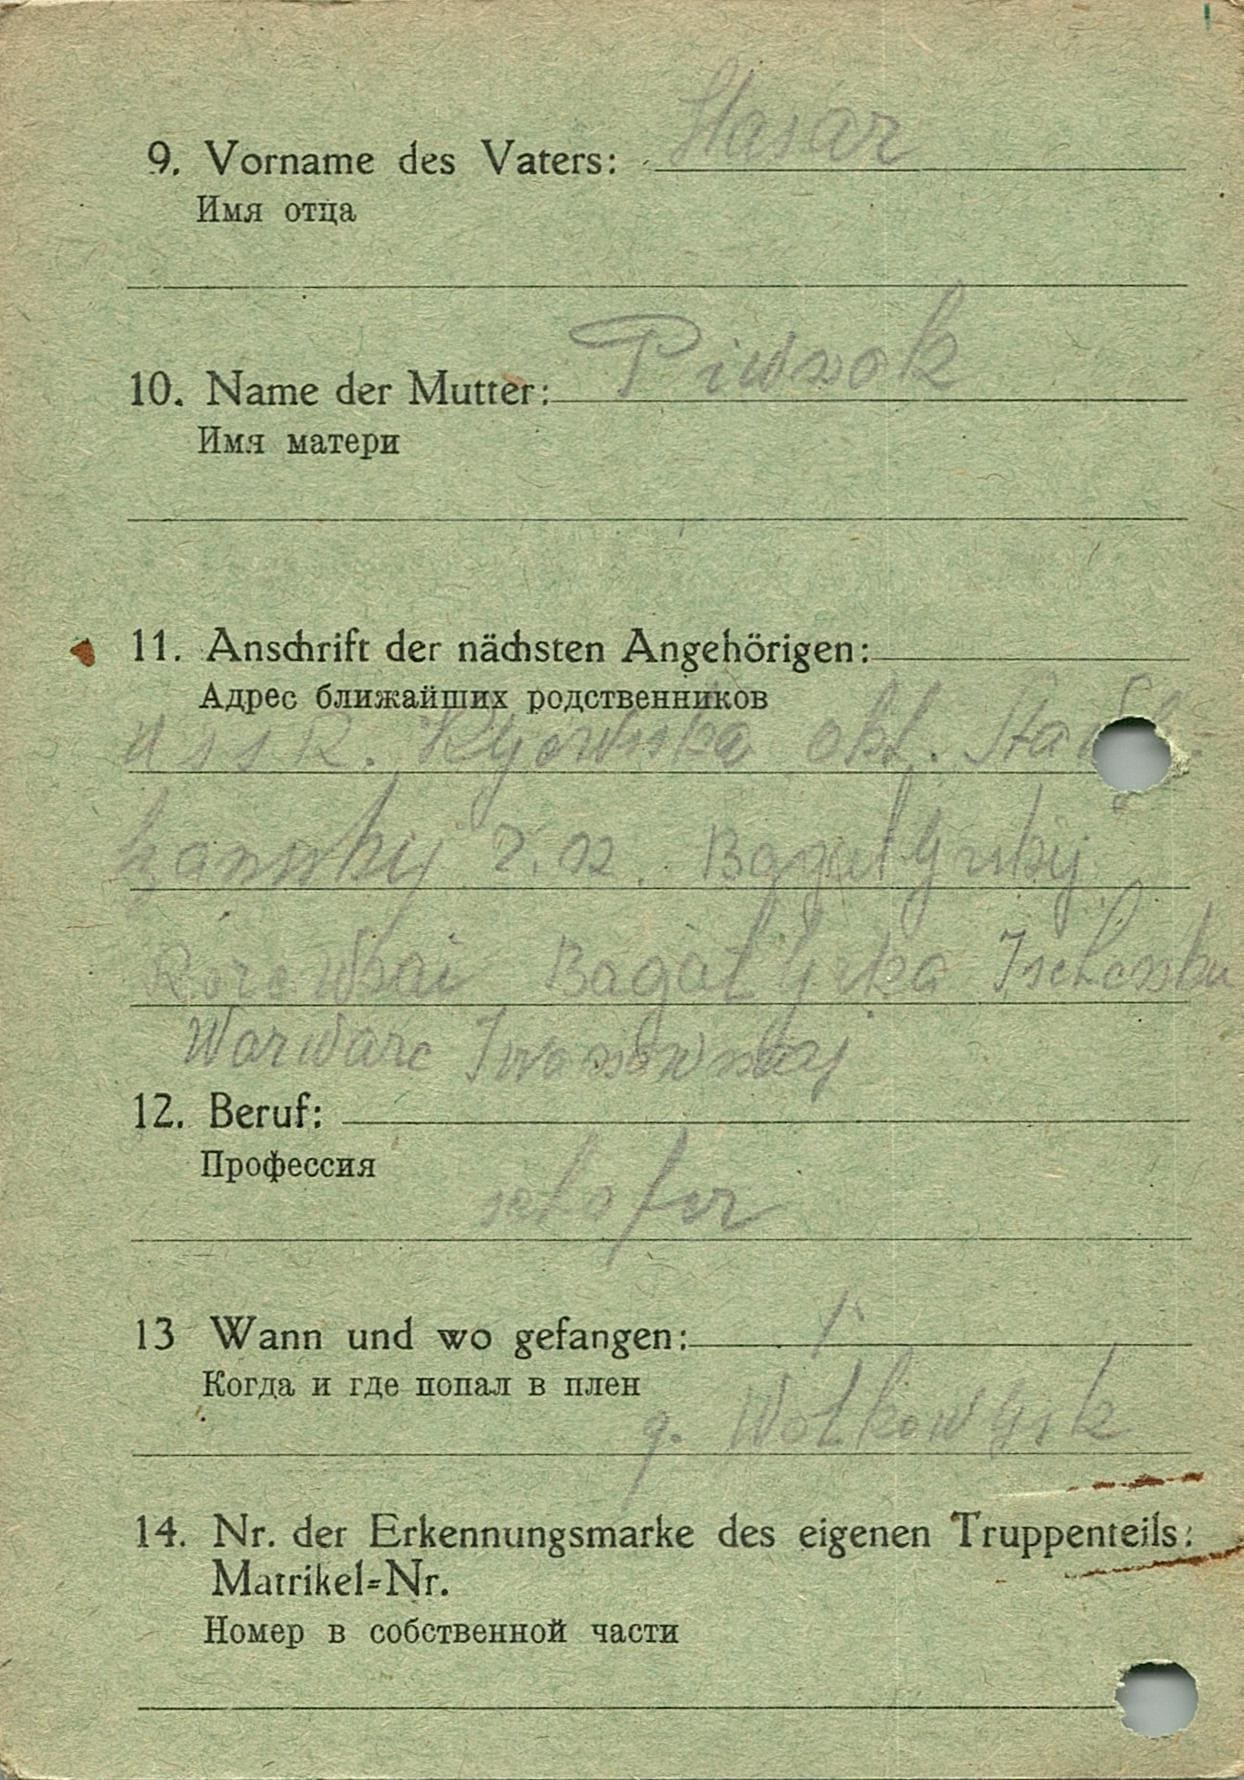 9. Vorname des Vaters: Hasar
Имя отца
10. Name der Mutter: Piwsok
Имя матери
11. Anschrift der nächsten Angehörigen:
Адрес ближайших родственников
USSR. Kyowska obl.
r.n.
Warware
12. Beruf:
Профессия
schofer
13 Wann und wo gefangen:
Когда и где попал в плен
g. Wolkowysk
14. Nr. der Erkennungsmarke des eigenen Truppenteils:
Matrikel=Nr.
Номер в собственной части